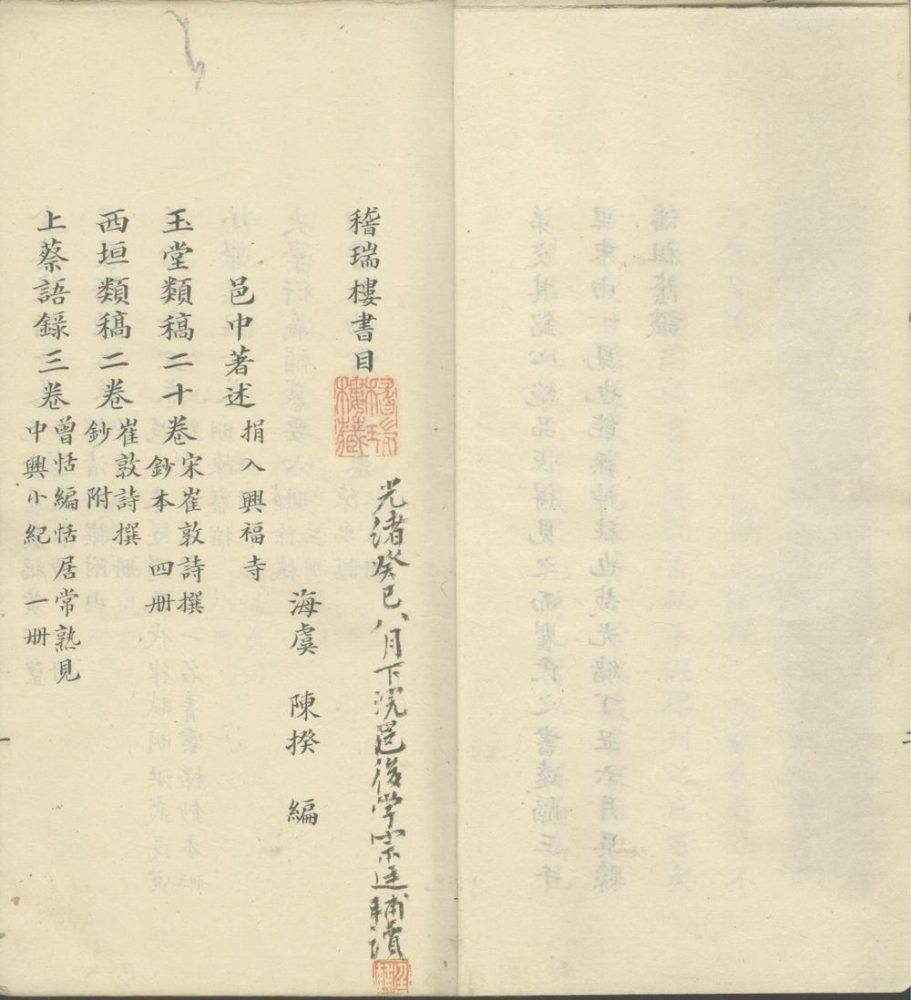 稽瑞樓書目
稽瑞樓藏
光緒癸巳八月下浣邑後學宗廷輔讀
海虞 陳揆 編
邑中著述 捐入興福寺
玉堂類稿二十卷 宋崔敦詩撰
鈔本 四冊
西垣類稿二卷 崔敦詩撰
鈔附
上蔡語錄三卷 曾恬編恬居常熟見
中興小紀 一冊